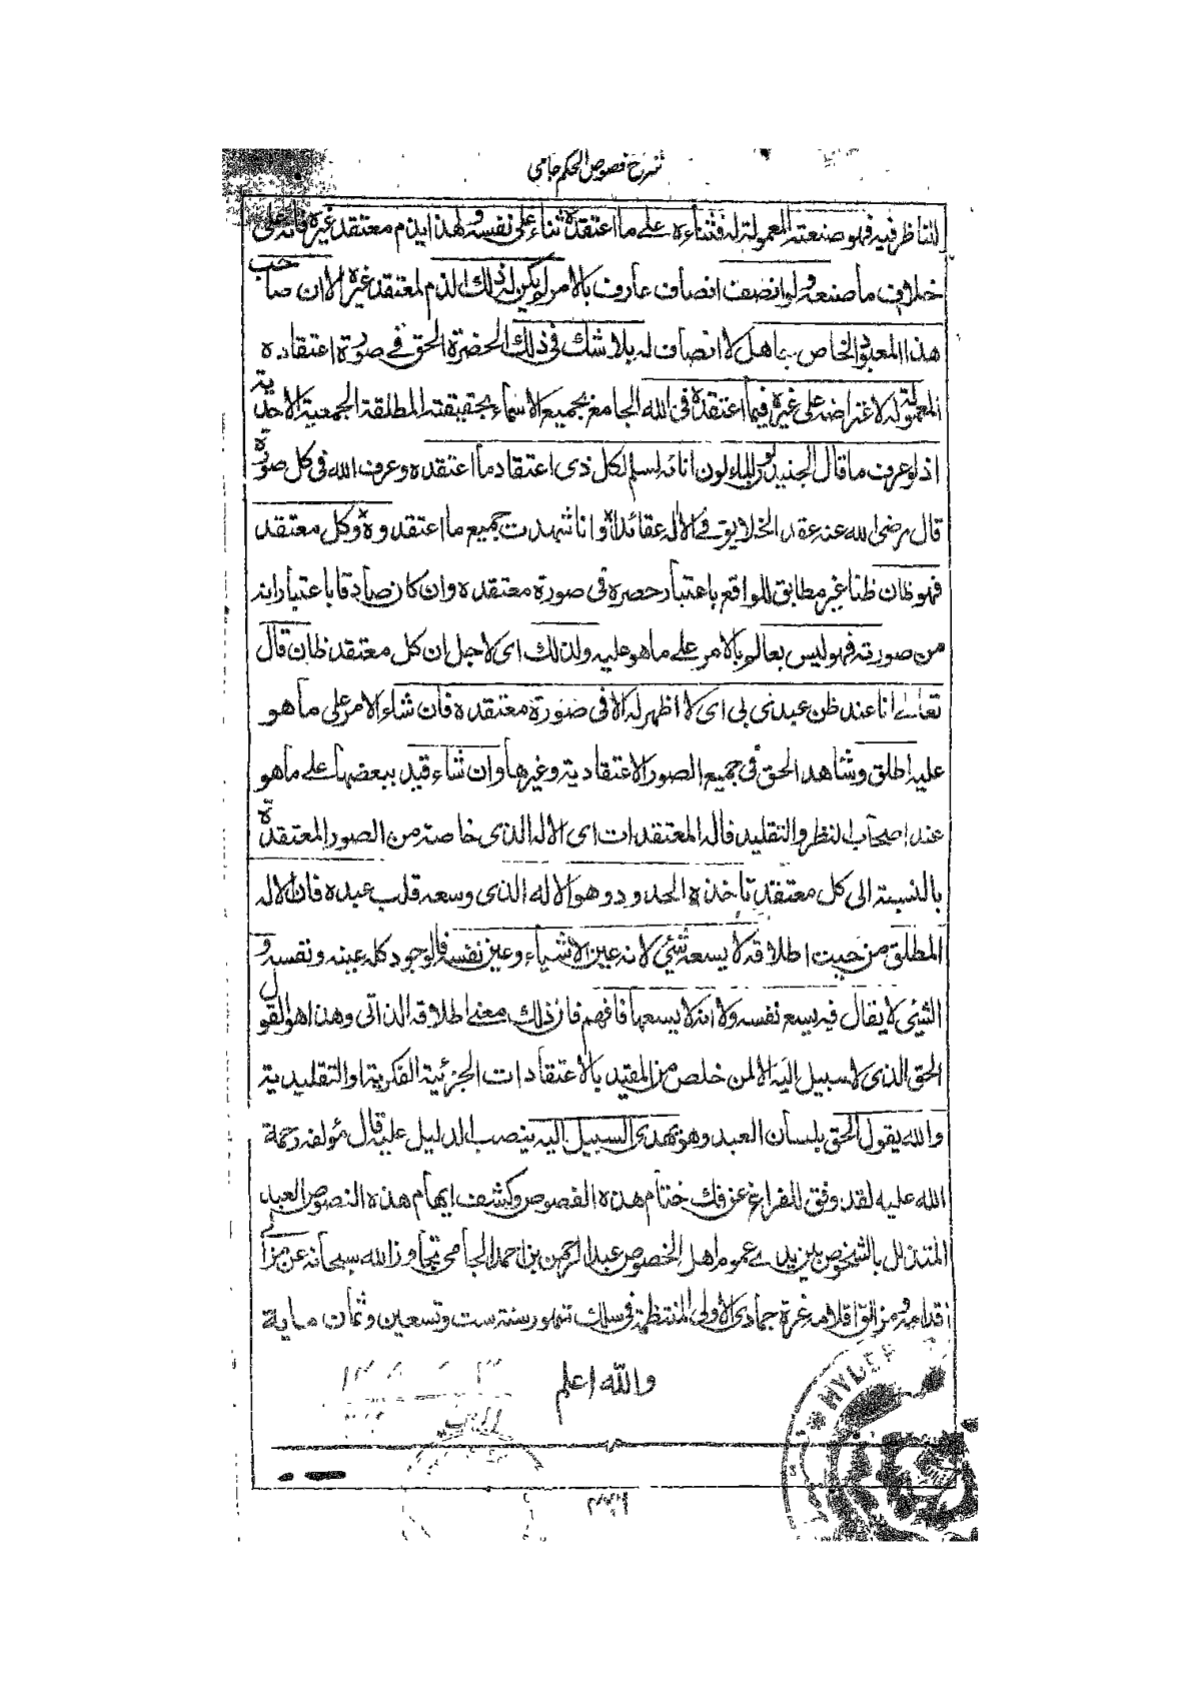 شرح فصوص الحكم جامى
للناظر فيه فهو صنعته المعمولة له فثناءه على ما اعتقده ثناء على نفسه ولهذا يذم معتقد غيره فانه على
خلاف ما صنعه ولو انصف انصاف عارف بالامر لم يكن له ذلك الذم لمعتقد غيره الا ان صاحب
هذا المعبود الخاص جاهل لا انصاف له بلا شك فى ذلك الحضرة الحق فى صورة اعتقاده
المعمولة له لاعتراضه على غيره فيما اعتقده فى الله الجامع بجميع الاسماء بحقيقته المطلقة الجمعية الاحدية
اذ لو عرف ما قال الجنيد لون الماء لون انائه لسلم لكل ذى اعتقاد ما اعتقده وعرف الله فى كل صورة
قال رضى الله عنه عقد الخلايق فى الاله عقائدا وانا شهدت جميع ما اعتقدوه وكل معتقد
فهو ظان ظنا غير مطابق للواقع باعتبار حصره فى صورة معتقده وان كان صادقا باعتبار انه
من صورته فهو ليس بعالم بالامر على ما هو عليه ولذلك اى لاجل ان كل معتقد ظان قال
تعالى انا عند ظن عبدى بى اى لا اظهر له الا فى صورة معتقده فان شاء الامر على ما هو
عليه اطلق وشاهد الحق فى جميع الصور الاعتقادية وغيرها وان شاء قيد ببعضها على ما هو
عند اصحاب النظر والتقليد فاله المعتقدات اى الاله الذى خاصته من الصور المعتقدة
بالنسبة الى كل معتقد تاخذه الحدود وهو الاله الذى وسعه قلب عبده فان الاله
المطلق من حيث اطلاقه لا يسعه شئ لانه عين الاشياء وعين نفسه فالوجود كله عينه ونفسه و
الشئ لا يقال فيه يسع نفسه ولا انه لا يسعها فافهم فان ذلك معنى اطلاقه الذاتى وهذا هو القول
الحق الذى لا سبيل اليه الا لمن خلص من المقيد بالاعتقادات الجزئية الفكرية او التقليدية
والله يقول الحق بلسان العبد وهو يهدى السبيل اليه ينصب الدليل عليه قال مؤلفه رحمة
الله عليه لقد وفق للفراغ عن فك ختام هذه الفصوص وكشف ابهام هذه النصوص العبد
المتذلل بالشخوص بين يدى عموم اهل الخصوص عبد الرحمن بن احمد الجامى تجاوز الله سبحانه عن مزال
اقدامه و اقلامه غرة جمادى الاولى المنتظمة فى سلك شهور سنة ست وتسعين وثمان ماية
والله اعلم